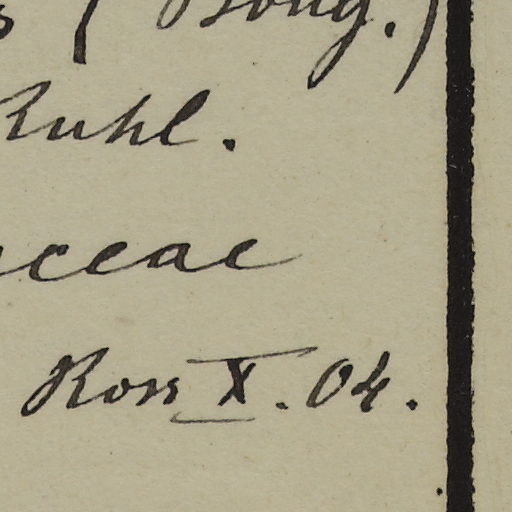 s (Bong.)
Ruhl.
aceae
Ross X. 04.